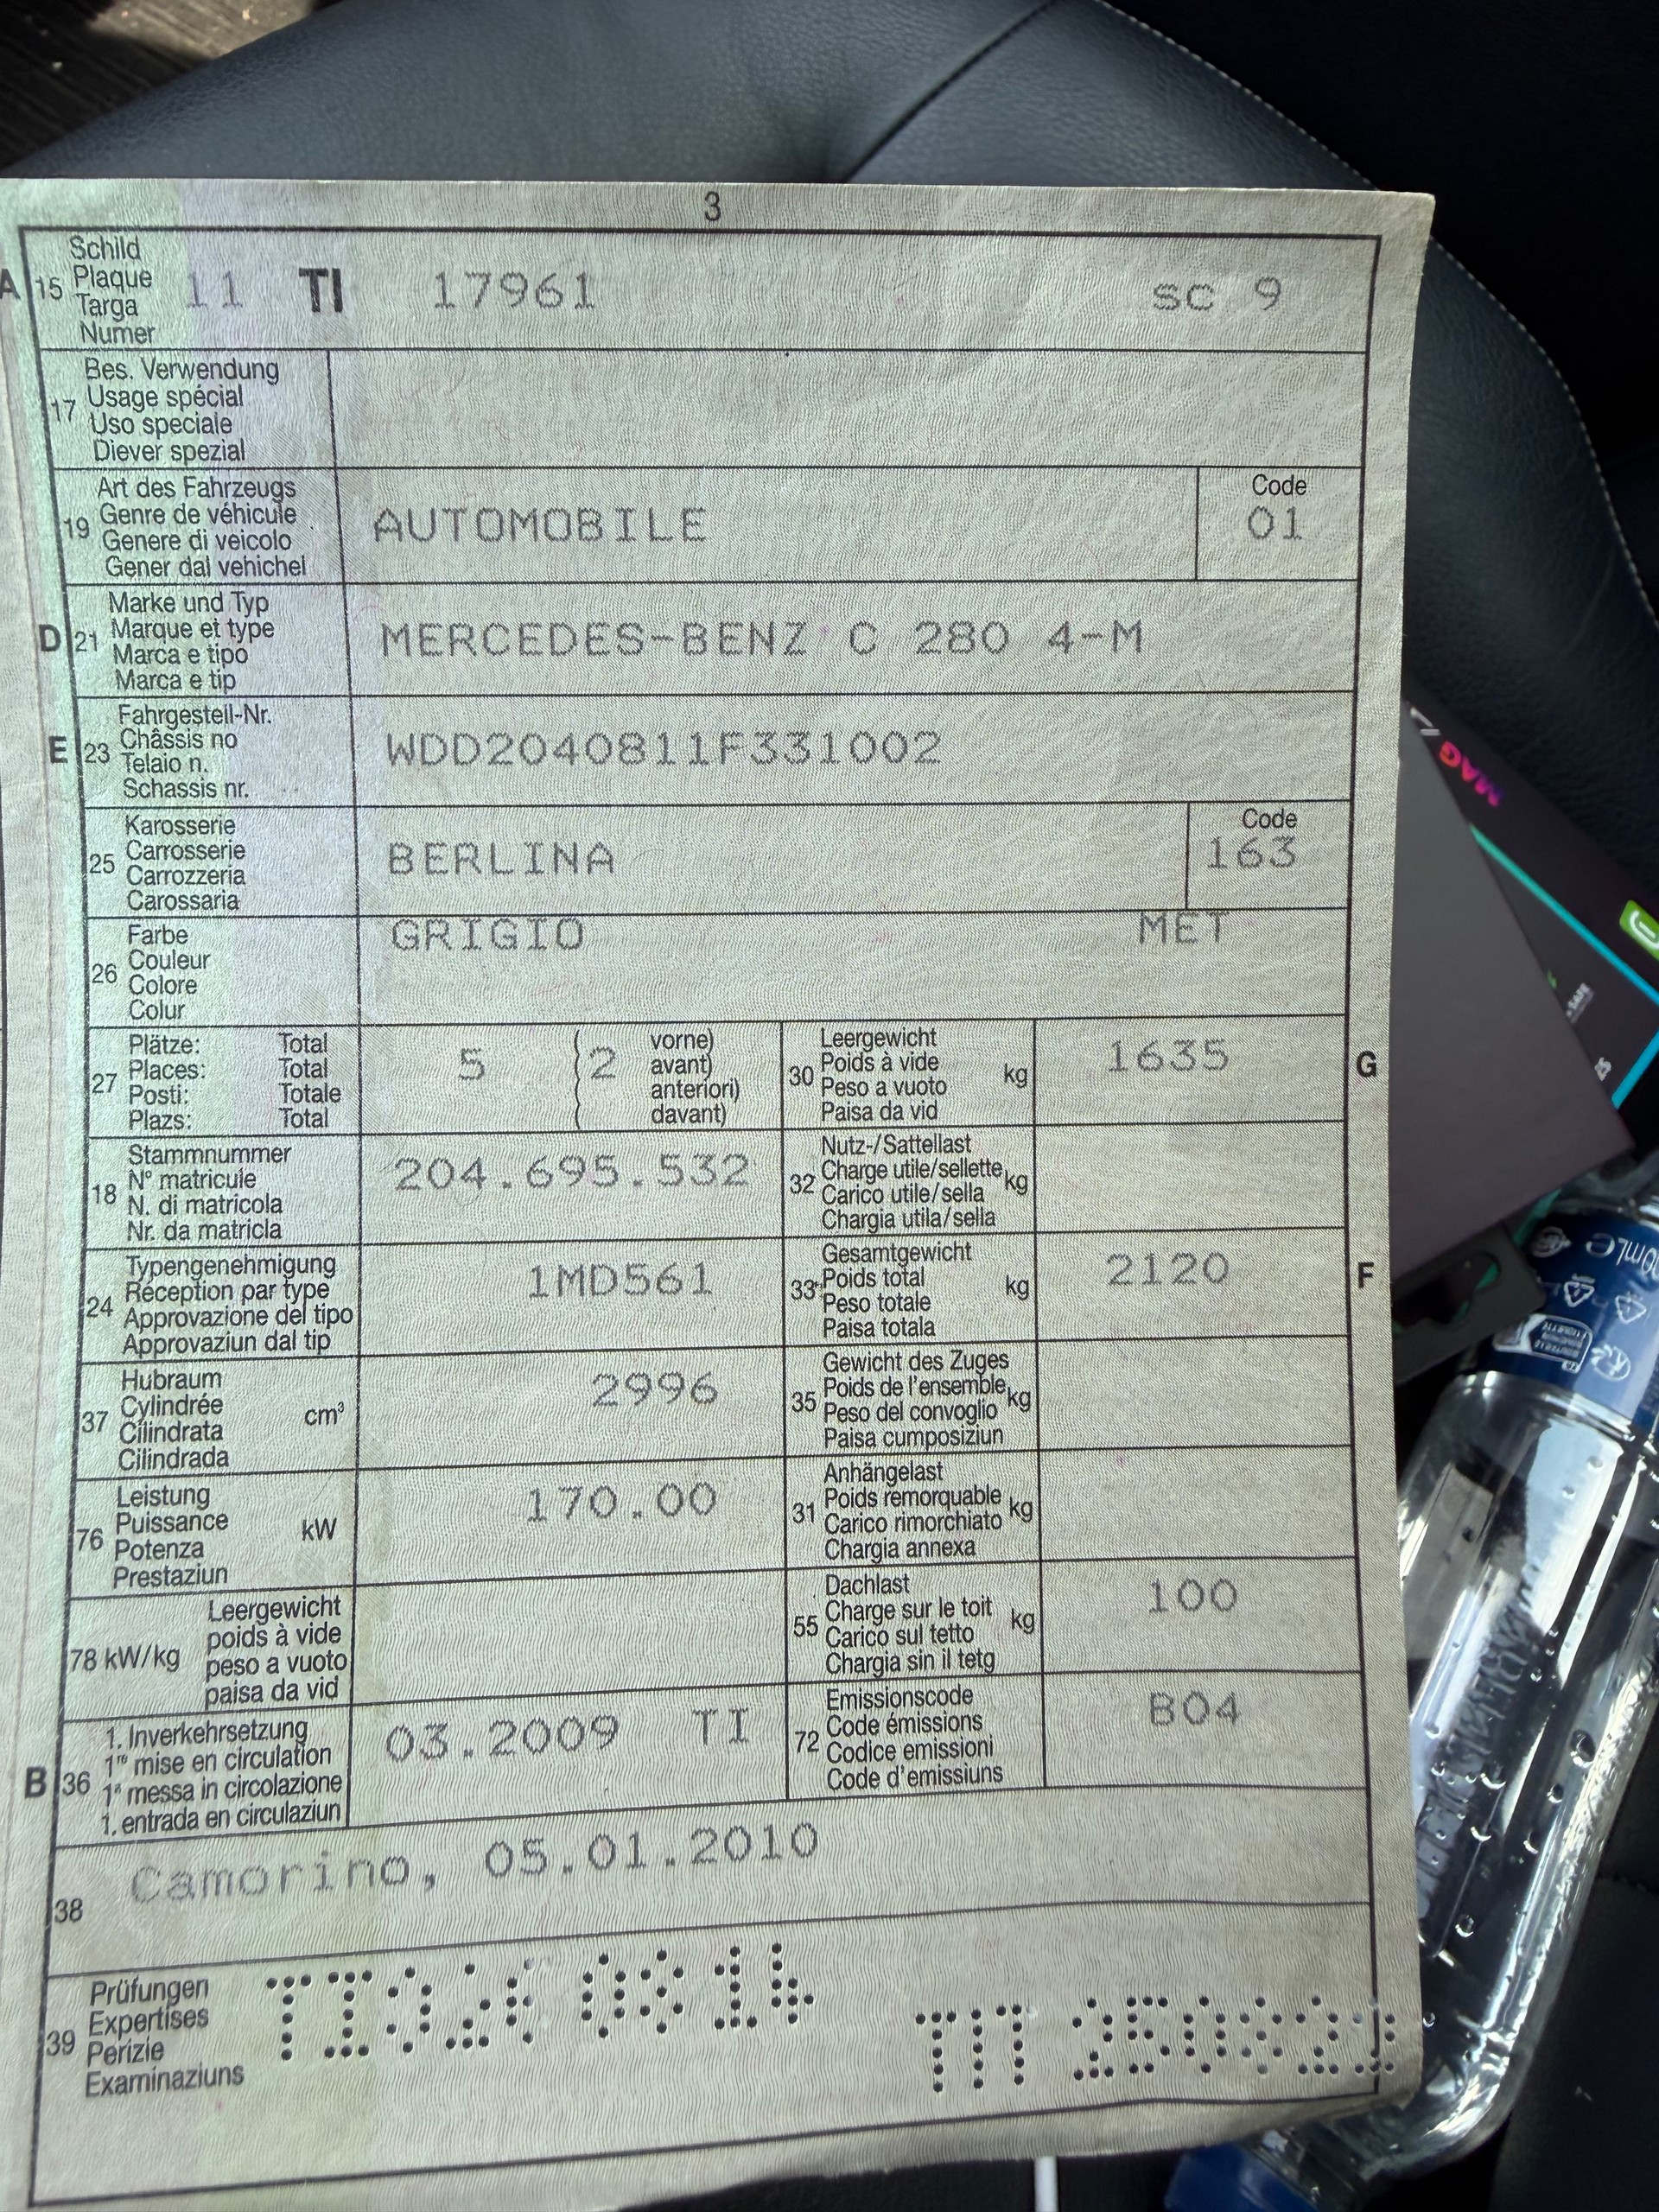 3
A 15 Schild
Plaque
Targa
Numer
11 TI 17961 sc 9
17 Bes. Verwendung
Usage spécial
Uso speciale
Diever spezial
19 Art des Fahrzeugs
Genre de véhicule
Genere di veicolo
Gener dal vehichel
AUTOMOBILE
Code
01
D 21 Marke und Typ
Marque et type
Marca e tipo
Marca e tip
MERCEDES-BENZ C 280 4-M
E 23 Fahrgestell-Nr.
Châssis no
Telaio n.
Schassis nr.
WDD2040811F331002
25 Karosserie
Carrosserie
Carrozzeria
Carossaria
BERLINA
Code
163
26 Farbe
Couleur
Colore
Colur
GRIGIO MET
27 Plätze: Total
Places: Total
Posti: Totale
Plazs: Total
5 (2 vorne)
avant)
anteriori)
davant)
30 Leergewicht
Poids à vide
Peso a vuoto kg
Paisa da vid
1635
G
18 Stammnummer
N° matricule
N. di matricola
Nr. da matricla
204.695.532
32 Nutz-/Sattellast
Charge utile/sellette kg
Carico utile/sella
Chargia utila/sella
24 Typengenehmigung
Réception par type
Approvazione del tipo
Approvaziun dal tip
1MD561
33 Gesamtgewicht
Poids total kg
Peso totale
Paisa totala
2120
F
37 Hubraum
Cylindrée
Cilindrata cm³
Cilindrada
2996
35 Gewicht des Zuges
Poids de l'ensemble kg
Peso del convoglio
Paisa cumposiziun
76 Leistung
Puissance kW
Potenza
Prestaziun
170.00
31 Anhängelast
Poids remorquable kg
Carico rimorchiato
Chargia annexa
78 kW/kg Leergewicht
poids à vide
peso a vuoto
paisa da vid
55 Dachlast
Charge sur le toit kg
Carico sul tetto
Chargia sin il tetg
100
B 36 1. Inverkehrsetzung
1re mise en circulation
1a messa in circolazione
1. entrada en circulaziun
03.2009 TI
72 Emissionscode
Code émissions
Codice emissioni
Code d'emissiuns
B04
38 Camorino, 05.01.2010
39 Prüfungen
Expertises
Perizie
Examinaziuns
MAG